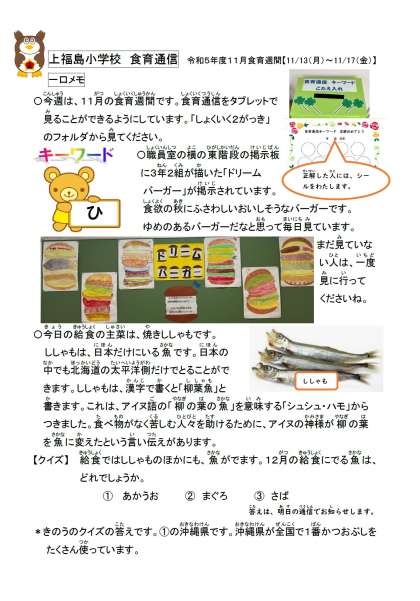 上福島小学校　食育通信　令和5年度11月食育週間【11/13(月)～11/17(金)】
一口メモ
○今週は、11月の食育週間です。食育通信をタブレットで
見ることができるようにしています。「しょくいく2がっき」
のフォルダから見てください。
食育通信　キーワード
こたえ入れ
正解した人には、シー
ルをわたします。
キーワード
ひ
○職員室の横の東階段の掲示板
に3年2組が描いた「ドリーム
バーガー」が掲示されています。
食欲の秋にふさわしいおいしそうなバーガーです。
ゆめのあるバーガーだなと思って毎日見ています。
まだ見ていな
い人は、一度
見に行って
くださいね。
○今日の給食の主菜は、焼きししゃもです。
ししゃもは、日本だけにいる魚です。日本の
中でも北海道の太平洋側だけでとることがで
きます。ししゃもは、漢字で書くと「柳葉魚」と
書きます。これは、アイヌ語の「柳の葉の魚」を意味する「シュシュ・ハモ」から
つきました。食べ物がなく苦しむ人々を助けるために、アイヌの神様が柳の葉
を魚に変えたという言い伝えがあります。
ししゃも
【クイズ】　給食ではししゃものほかにも、魚がでます。12月の給食にでる魚は、
どれでしょうか。
①　あかうお　　②　まぐろ　　③　さば
答えは、明日の通信でお知らせします。
＊きのうのクイズの答えです。①の沖縄県です。沖縄県が全国で1番かつおぶしを
たくさん使っています。